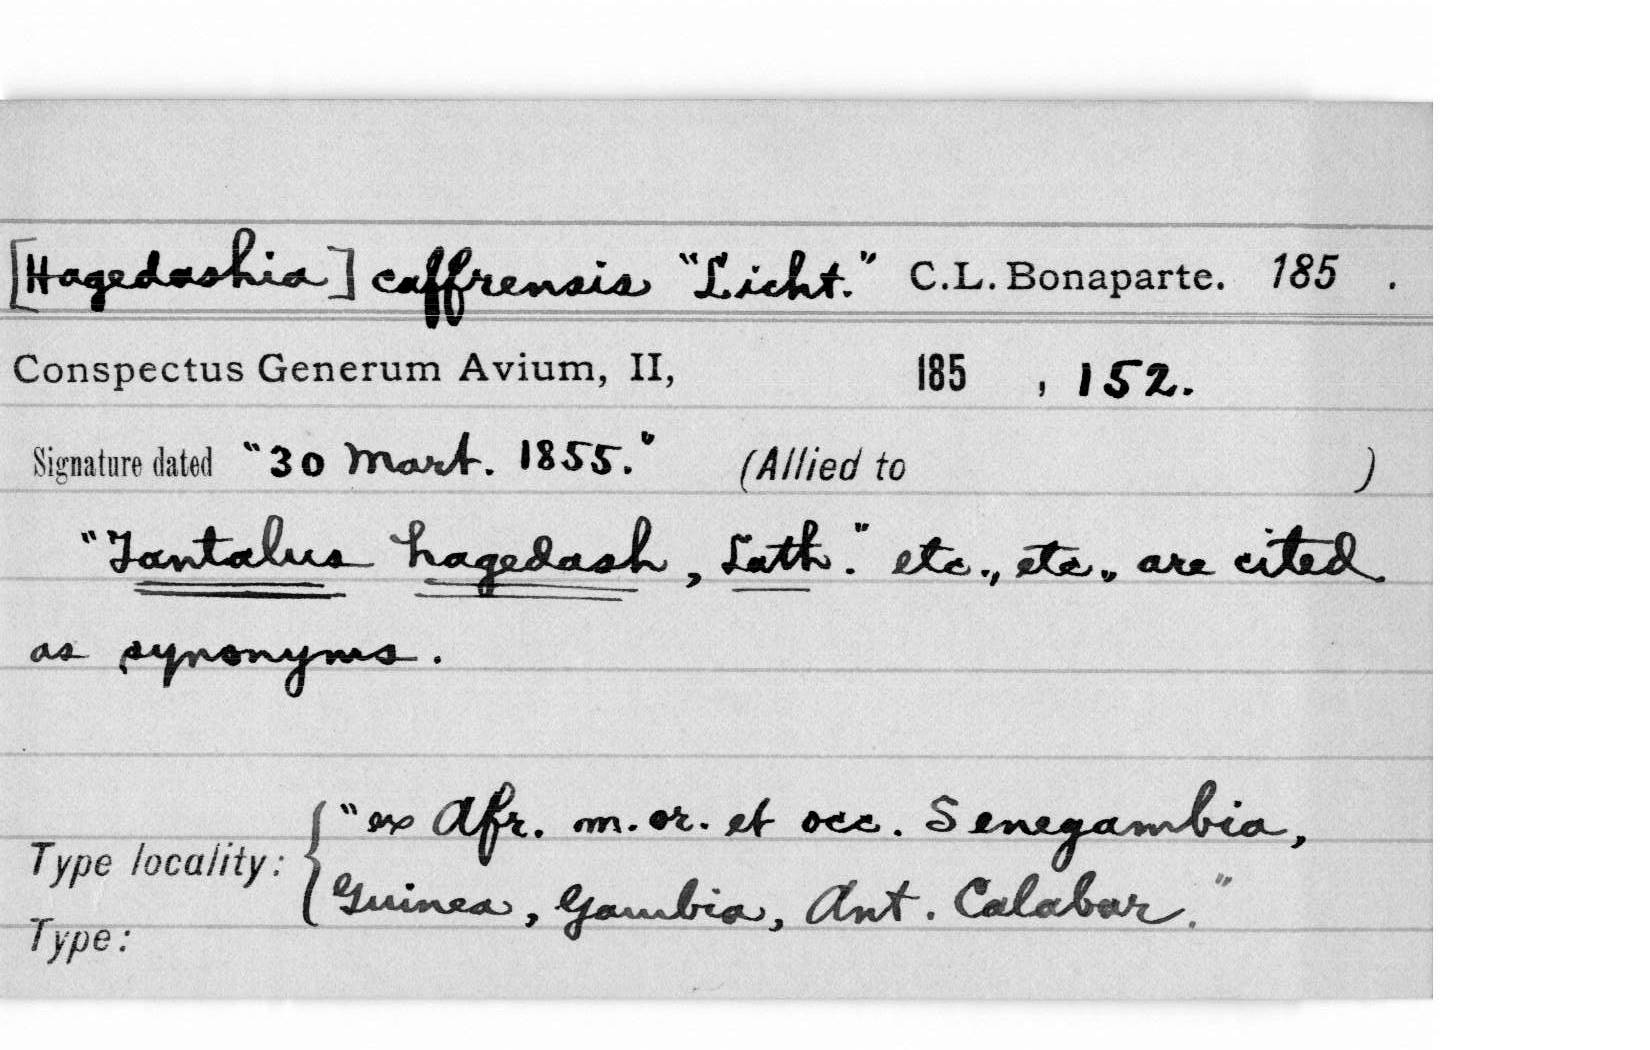 [Hagedashia] caffrensis "Licht." C.L. Bonaparte. 185 .
Conspectus Generum Avium, II, 185 , 152.
Signature dated "30 Mart. 1855." (Allied to )
"Tantalus hagedash, Lath." etc., etc., are cited
as synonyms.
"ex Afr. m. or. et occ. Senegambia,
Type locality: { Guinea, Gambia, Ant. Calabar."
Type: